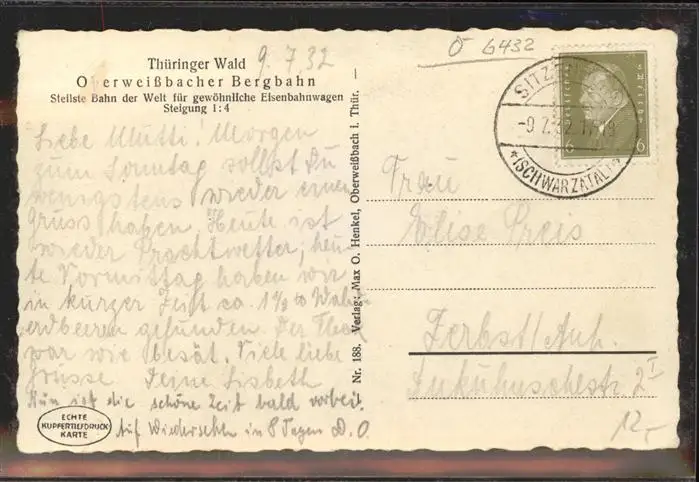 Thüringer Wald
9.7.32
Oberweißbacher Bergbahn
Steilste Bahn der Welt für gewöhnliche Eisenbahnwagen
Steigung 1:4
Liebe Mutti! Morgen
zum Sonntag sollst Du
wenigstens wieder einen
Gruss haben. Heute ist
wieder Prachtwetter; heu-
te Vormittag haben wir
in kurzer Zeit ca. 1½ Wald-
erdbeeren gefunden. Der Fleck
war wie besät. Viele liebe
Grüsse Deine Lisbeth
Nun ist die schöne Zeit bald vorbei.
Auf Wiedersehen in 8 Tagen D. O.
ECHTE
KUPFERTIEFDRUCK
KARTE
Nr. 188. Verlag: Max O. Henkel, Oberweißbach i. Thür.
6432
SITZ
-9.7.32.17
*(SCHWARZATAL)*
6 6
Frau
Elise Preis
Zerbst/Anh.
2 I
12,-